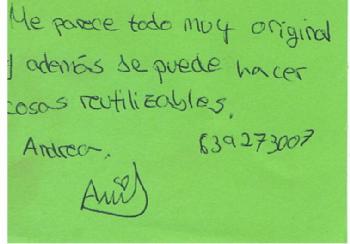 Me parece todo muy original
y además se puede hacer
cosas reutilizables.
Andrea. 639273007